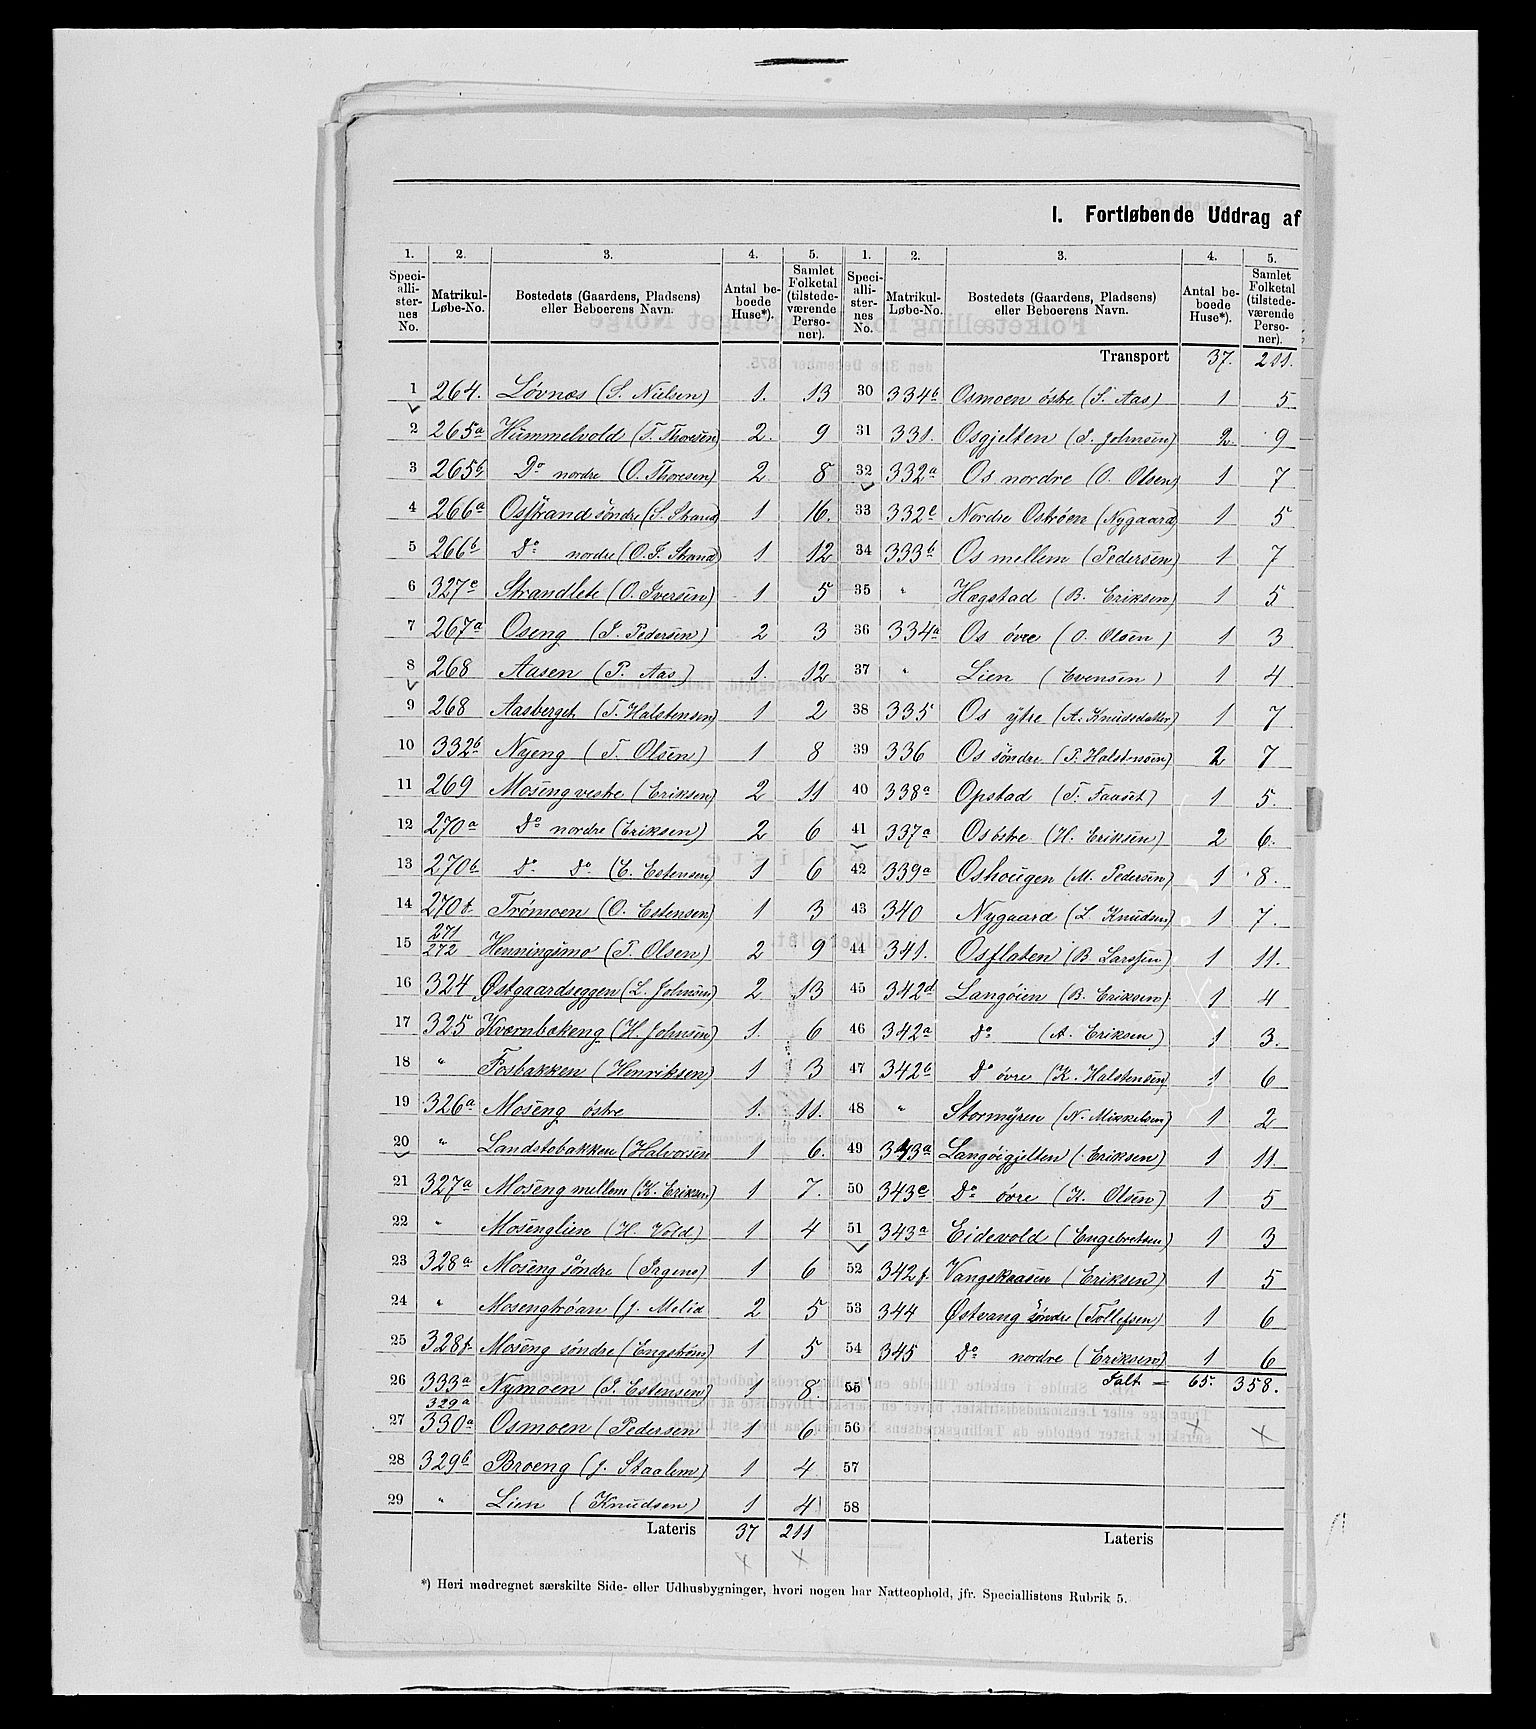 I. Fortløbende Uddrag af
1. 2. 3. 4. 5. 1. 2. 3. 4. 5.
Speciallisternes No. Matrikul-Løbe-No. Bostedets (Gaardens, Pladsens) eller Beboerens Navn. Antal beboede Huse*). Samlet Folketal (tilstedeværende Personer). Speciallisternes No. Matrikul-Løbe-No. Bostedets (Gaardens, Pladsens) eller Beboerens Navn. Antal beboede Huse*). Samlet Folketal (tilstedeværende Personer).
Transport 37. 211.
1 264. Løvnæs (S. Nielsen) 1. 13
2 265a Hummelvold (T. Thoresen) 2. 9
3 265b Do nordre (O. Thoresen) 2 8
4 266a Osstrand søndre (S. Strand) 1 16.
5 266b Do nordre (O. T. Strand) 1 12
6 327e Strandlete (O. Iversen) 1 5
7 267a Oseng (J. Pedersen) 2 3
8 268 Aasen (P. Aas) 1. 12
9 268 Aasberget (T. Halstensen) 1 2
10 332b Nyeng (T. Olsen) 1 8
11 269 Moseng vestre (Eriksen) 2 11
12 270a Do nordre (Eriksen) 2 6
13 270b Do Do (E. Estensen) 1 6
14 270f. Trømoen (O. Estensen) 1 3
15 271/272 Henningsmo (T. Olsen) 2 9
16 324 Østgaardseggen (L. Johnsen) 2 13
17 325 Kvernbakeng (H. Johnsen) 1. 6
18 " Fosbakken (Henriksen) 1 3
19 326a Moseng østre 1. 11.
20 " Landstobakken (Halvorsen 1 6.
21 327a Moseng mellem (K. Eriksen) 1 7.
22 " Mosenglien (H. Vold) 1 4
23 328a Moseng søndre (Irgens) 1 6
24 " Mosengtrøan (J. Melid 2 5
25 328f. Moseng søndre (Engstrøm) 1 5
26 333a Nymoen (J. Estensen) 1 8.
27 329a/330a Osmoen (Pedersen 1 6
28 329b Broeng (J. Staalem) 1 4
29 " Lien (Knudsen) 1 4
Lateris 37 211
30 334b Osmoen østre (S. Aas) 1 5
31 331. Osgjelten (J. Johnsen) 2. 9
32 332a Os nordre (O. Olsen) 1 7
33 332c Nordre Ostrøen (Nygaard) 1 5
34 333b Os mellem (Pedersen) 1 7
35 " Hagstad (B. Eriksen) 1 5
36 334a Os øvre (O. Olsen) 1 3
37 " Lien (Evensen) 1 4
38 335 Os ytre (A. Knudsdatter) 1 7
39 336 Os søndre (P. Halstensen) 2 7
40 338a Opstad (T. Faaset) 1 5.
41 337a Os østre (H. Eriksen) 2 6.
42 339a Oshougen (M. Pedersen) 1 8.
43 340 Nygaard (L. Knudsen) 1 7.
44 341. Osflaten (B. Larssen) 1 11.
45 342d Langøien (B. Eriksen) 1 4
46 342a Do (A. Eriksen) 1 3.
47 342b Do øvre (K. Halstensen) 1 6
48 " Stormyren (N. Mikkelsen) 1 2
49 343a Langøigjelten (Eriksen) 1 11.
50 343e Do øvre (K. Olsen) 1 5
51 343a Eidevold (Engebretsen) 1 3
52 342f. Vangskaasen (Eriksen) 1 5
53 344 Østvang søndre (Tollefsen) 1 6
54 345 Do nordre (Eriksen) 1 6
55 Ialt = 65. 358.
56
57
58
Lateris
*) Heri medregnet særskilte Side- eller Udhusbygninger, hvori nogen har Natteophold, jfr. Speciallistens Rubrik 5.